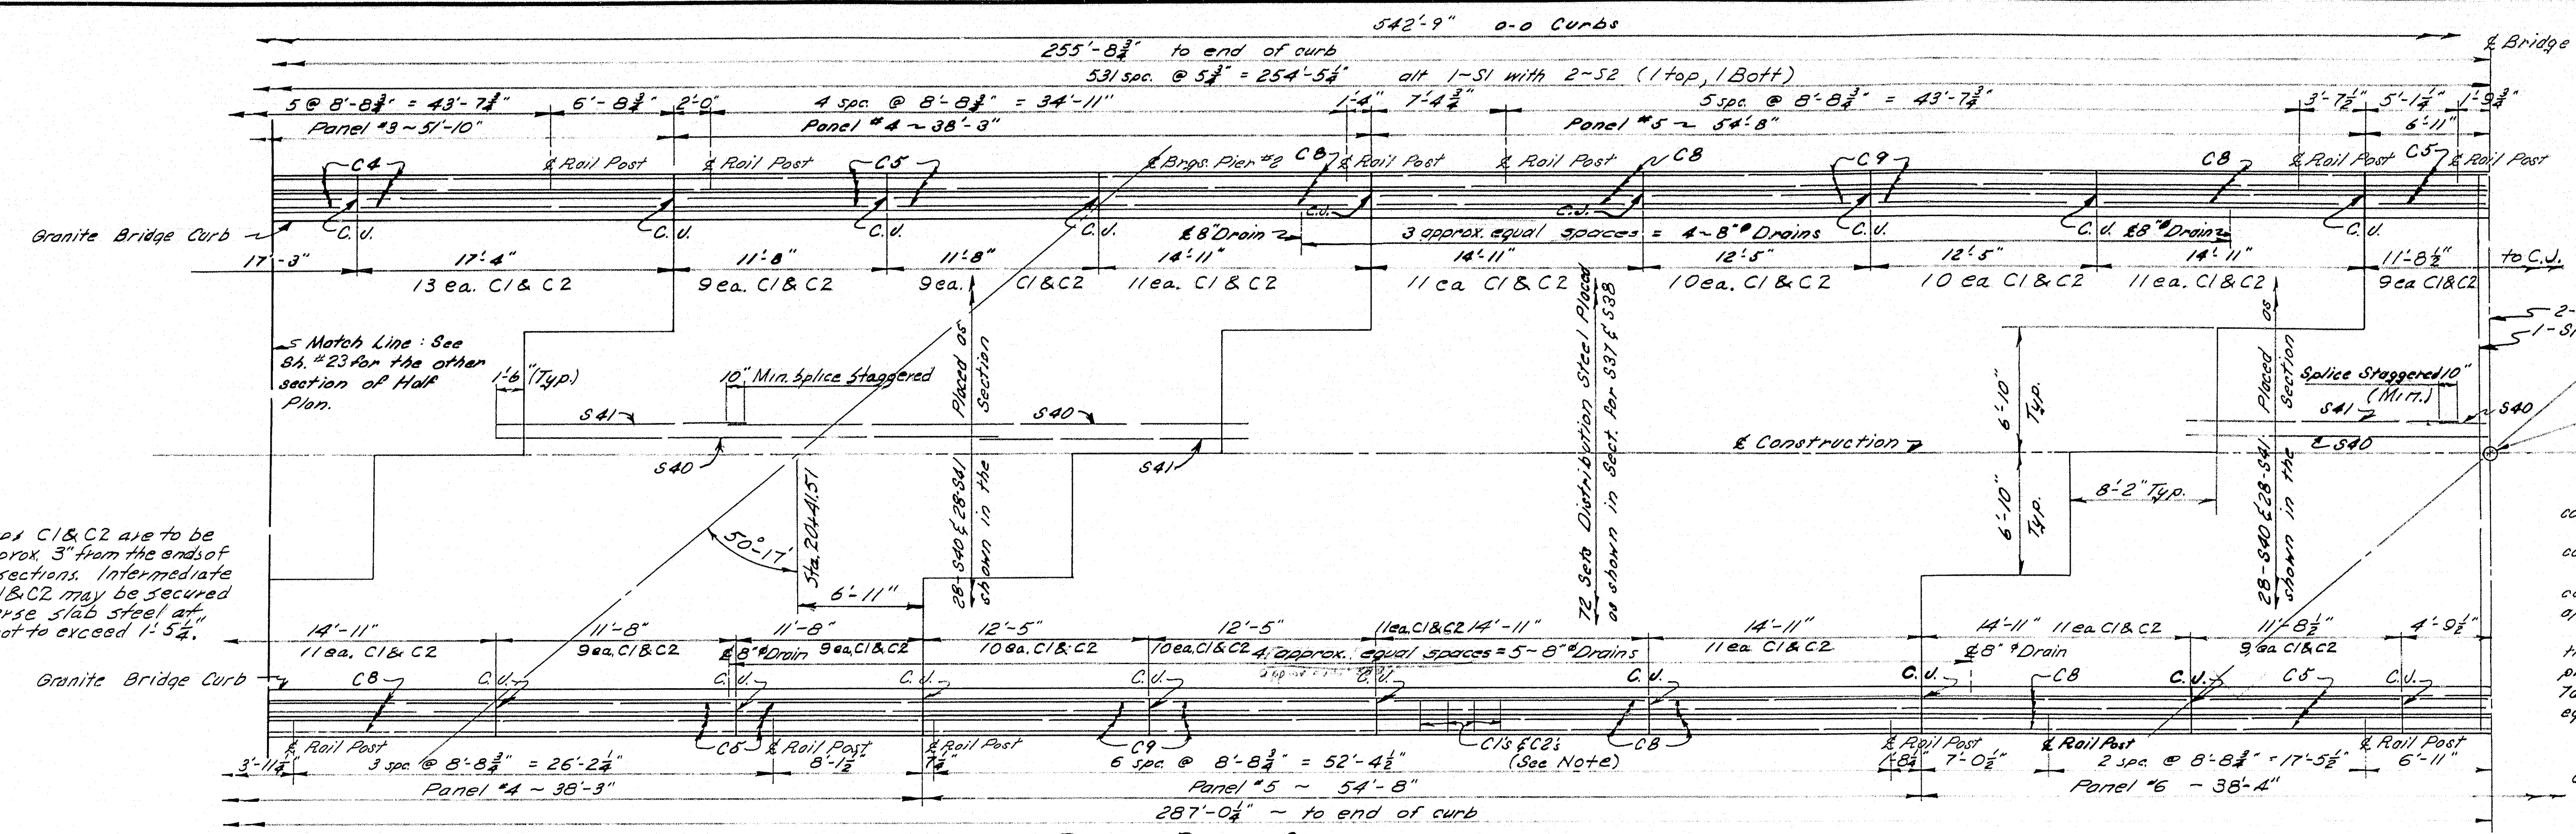 542'-9" o-o Curbs
℄ Bridge
255'-8¾" to end of curb
531 spc. @ 5¾" = 254'-5¼" alt 1~S1 with 2~S2 (1 top, 1 Bott)
5 @ 8'-8¾" = 43'-7¾" 6'-8¾" 2'-0" 4 spc. @ 8'-8¾" = 34'-11" 1'-4" 7'-4¾" 5 spc. @ 8'-8¾" = 43'-7¾" 3'-7½" 5'-1¼" 1'-9¾"
Panel #3 ~ 51'-10" Panel #4 ~ 38'-3" Panel #5 ~ 54'-8" 6'-11"
C4 ℄ Rail Post ℄ Rail Post C5 ℄ Brgs. Pier #2 C8 ℄ Rail Post ℄ Rail Post C8 C9 C8 ℄ Rail Post C5 ℄ Rail Post
C.J. C.J.
Granite Bridge Curb C.J. C.J. C.J. C.J. ℄ 8" Drain 3 approx. equal spaces = 4~8"ø Drains C.J. C.J. ℄ 8"ø Drain C.J.
17'-3" 17'-4" 11'-8" 11'-8" 14'-11" 14'-11" 12'-5" 12'-5" 14'-11" 11'-8½" to C.J.
13 ea. C1 & C2 9 ea. C1 & C2 9 ea. C1 & C2 11 ea. C1 & C2 11 ea C1 & C2 10 ea. C1 & C2 10 ea C1 & C2 11 ea. C1 & C2 9 ea C1 & C2
2-
1-S1
Match Line : See
Sh. #23 for the other
section of Half
Plan.
1'-6 (Typ.) 10" Min. Splice Staggered
Splice Staggered 10"
(Min.)
S41 S40 S41 S40
S40 S41 S40
℄ Construction
28-S40 & 28-S41 Placed as
shown in the Section
72 Sets Distribution Steel Placed
as shown in Sect. for S37 & S38
6'-10" Typ.
6'-10" Typ.
8'-2" Typ.
28-S40 & 28-S41 Placed as
shown in the Section
50°-17'
Sta. 20+41.51
6'-11"
C1 & C2 are to be
prox. 3" from the ends of
sections. Intermediate
1 & C2 may be secured
erse slab steel at
not to exceed 1'-5¼"
14'-11" 11'-8" 11'-8" 12'-5" 12'-5" 11 ea. C1 & C2 14'-11" 14'-11" 14'-11" 11 ea C1 & C2 11'-8½" 4'-9½"
11 ea. C1 & C2 9 ea. C1 & C2 ℄ 8"ø Drain 9 ea. C1 & C2 10 ea. C1 & C2 10 ea. C1 & C2 4 approx. equal spaces = 5~8"ø Drains 11 ea C1 & C2 ℄ 8"ø Drain 9 ea C1 & C2
Granite Bridge Curb C8 C.J. C.J. C.J. C.J. C.J. C.J. C.J. C8 C.J. C5 C.J.
℄ Rail Post C5 ℄ Rail Post ℄ Rail Post C9 C1's & C2's C8 ℄ Rail Post ℄ Rail Post ℄ Rail Post
3'-11¼" 3 spc. @ 8'-8¾" = 26'-2¼" 8'-1½" 7¼" 6 spc. @ 8'-8¾" = 52'-4½" (See Note) 1'-8¼" 7'-0½" 2 spc. @ 8'-8¾" = 17'-5½" 6'-11"
Panel #4 ~ 38'-3" Panel #5 ~ 54'-8" Panel #6 - 38'-4"
287'-0¼" ~ to end of curb